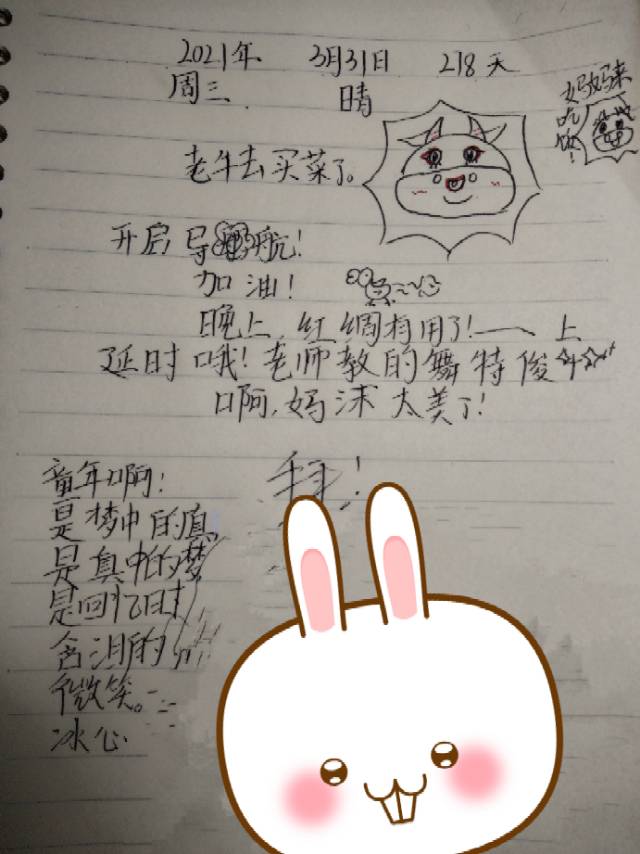 2021年 3月31日 218天
周三 晴
妈妈来吃饭!
老牛去买菜了。
开启导航!
加油!
晚上,红绸有用了!——上
延时哦!老师教的舞特俊
啊,妈沫太美了!
童年啊!
是梦中的真
是真中的梦
是回忆时
含泪的
微笑。
冰心